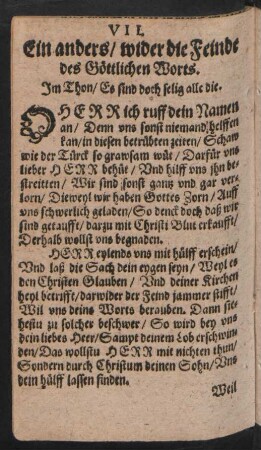 VII.
Ein anders/ wider die Feinde
des Göttlichen Worts.
Im Thon/ Es sind doch selig alle die.
OHERR ich ruff dein Namen
an/ Denn vns sonst niemand helffen
kan/ in diesen betrübten zeiten/ Schaw
wie der Türck so grawsam wüt/ Darfür vns
lieber HERR behüt/ Vnd hilff vns jhn be-
streitten/ Wir sind sonst gantz vnd gar ver-
lorn/ Dieweyl wir haben Gottes Zorn/ Auff
vns schwerlich geladen/ So denck doch daß wir
sind getaufft/ darzu mit Christi Blut erkaufft/
Derhalb wollst vns begnaden.
HERR eylends vns mit hülff erschein/
Vnd laß die Sach dein eygen seyn/ Weyl es
den Christen Glauben/ Vnd deiner Kirchen
heyl betrifft/ darwider der Feind jammer stifft/
Wil vns deins Worts berauben. Dann sie-
hestu zu solcher beschwer/ So wird bey vns
dein liebes Heer/ Sampt deinem Lob erschwin-
den/ Das wollstu HERR mit nichten thun/
Sondern durch Christum deinen Sohn/ Vns
dein hülff lassen finden.
Weil